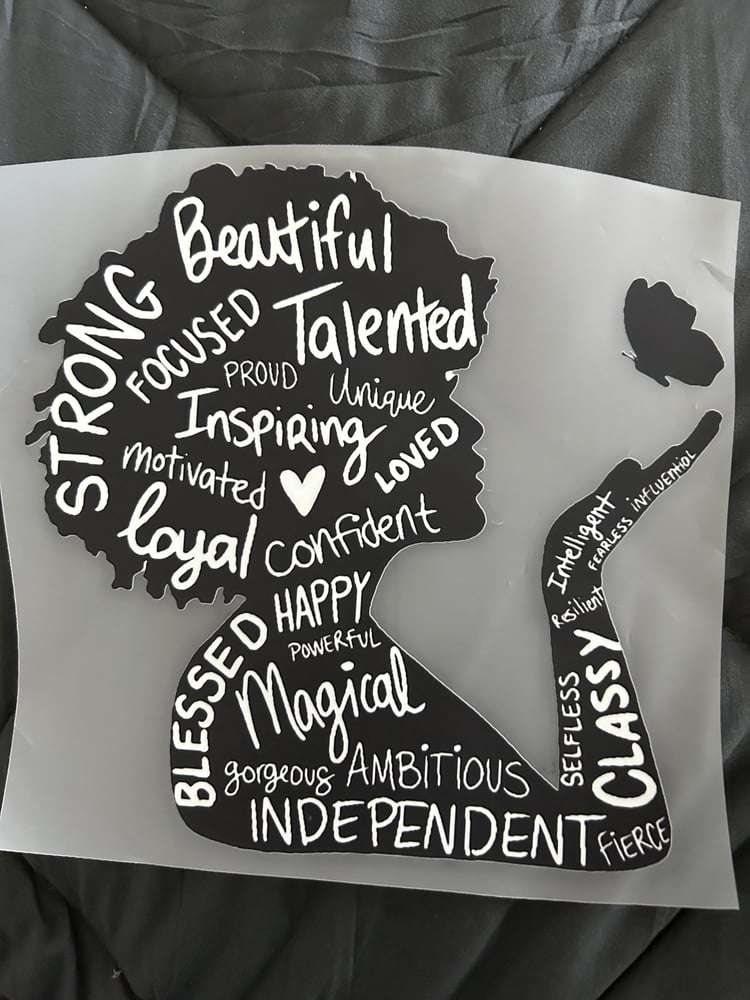 Beautiful
STRONG
FOCUSED
Talented
PROUD
Unique
Inspiring
LOVED
motivated
loyal
confident
HAPPY
BLESSED
POWERFUL
Magical
gorgeous
AMBiTiOUS
INDEPENDENT
FiERCE
CLASSY
SELFLESS
Resilient
Intelligent
FEARLESS
iNFLUENTiAL